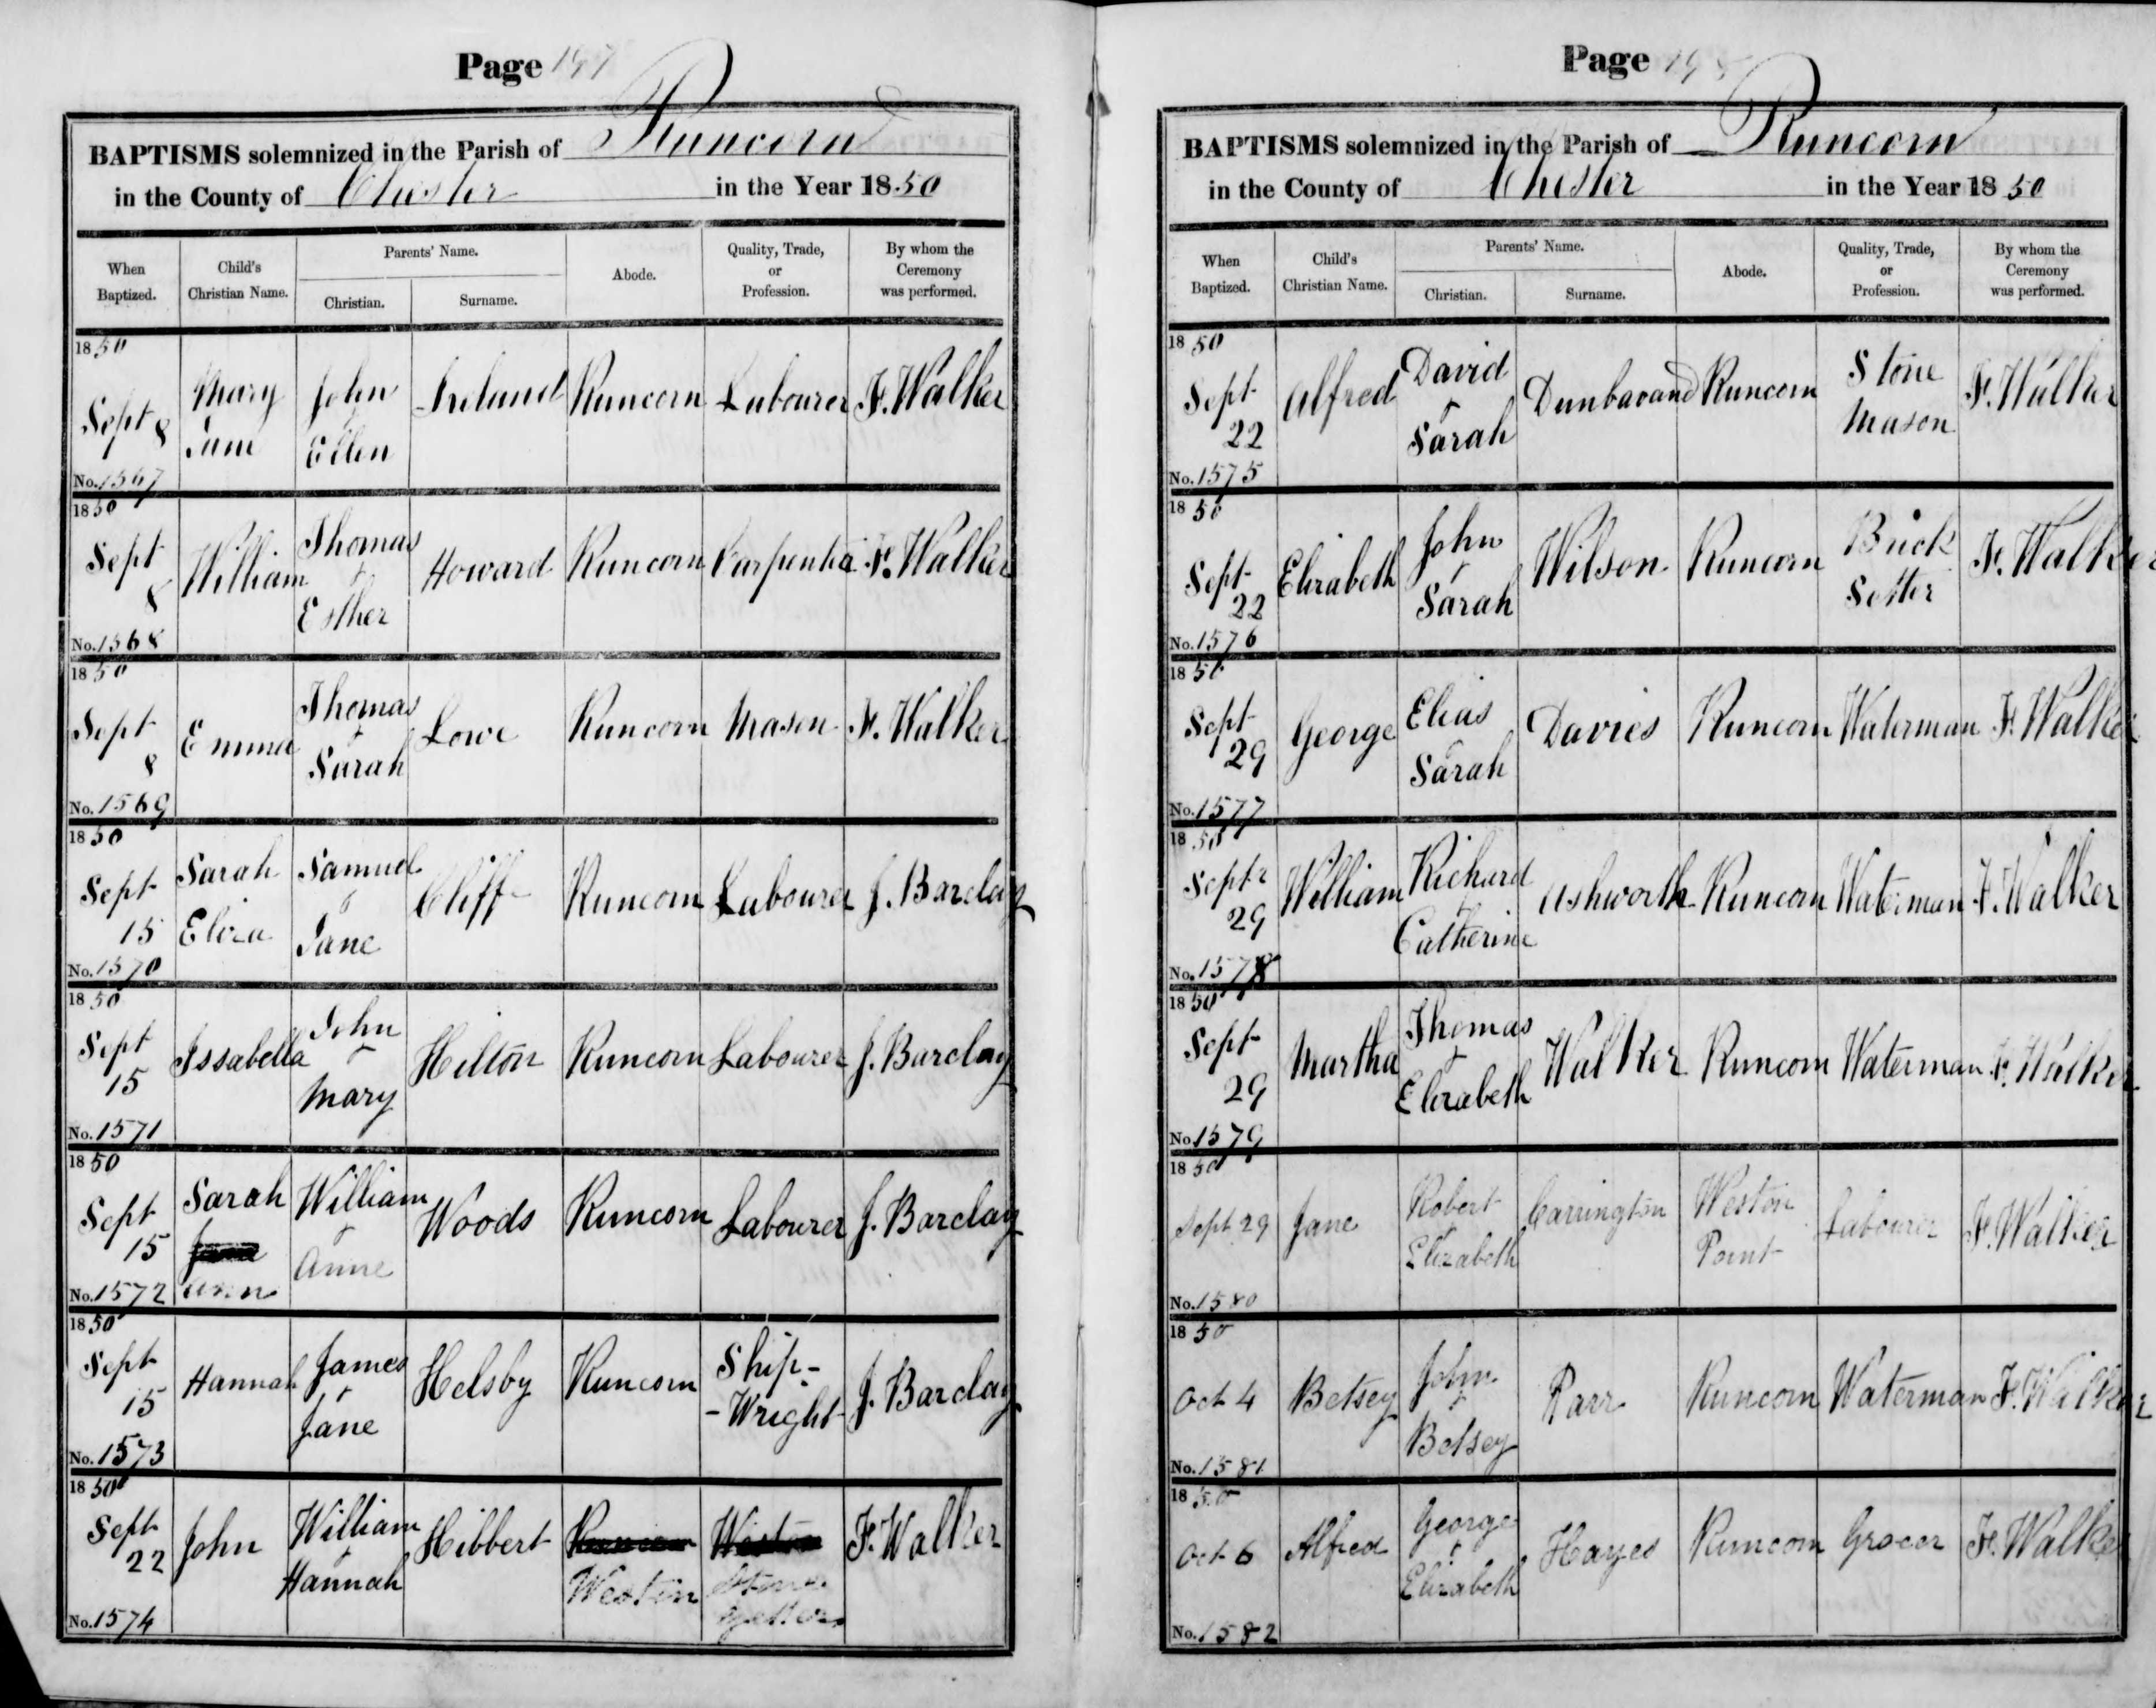 Page 197
BAPTISMS solemnized in the Parish of Runcorn
in the County of Chester in the Year 1850
When Baptized. Child's Christian Name. Parents' Name. Christian. Surname. Abode. Quality, Trade, or Profession. By whom the Ceremony was performed.
1850 Sept 8 No. 1567 Mary Jane John & Ellen Ireland Runcorn Labourer F. Walker
1850 Sept 8 No. 1568 William Thomas & Esther Howard Runcorn Carpenter F. Walker
1850 Sept 8 No. 1569 Emma Thomas & Sarah Lowe Runcorn Mason F. Walker
1850 Sept 15 No. 1570 Sarah Eliza Samuel & Jane Cliff Runcorn Labourer J. Barclay
1850 Sept 15 No. 1571 Issabella John & Mary Hilton Runcorn Labourer J. Barclay
1850 Sept 15 No. 1572 Sarah Jane Ann William & Anne Woods Runcorn Labourer J. Barclay
1850 Sept 15 No. 1573 Hannah James & Jane Helsby Runcorn Ship- -Wright J. Barclay
1850 Sept 22 No. 1574 John William & Hannah Hibbert Runcorn Weston Weston Stone getter F. Walker
Page 198
BAPTISMS solemnized in the Parish of Runcorn
in the County of Chester in the Year 1850
When Baptized. Child's Christian Name. Parents' Name. Christian. Surname. Abode. Quality, Trade, or Profession. By whom the Ceremony was performed.
1850 Sept 22 No. 1575 Alfred David & Sarah Dunbavand Runcorn Stone Mason F. Walker
1850 Sept 22 No. 1576 Elizabeth John & Sarah Wilson Runcorn Brick Setter F. Walker
1850 Sept 29 No. 1577 George Elias & Sarah Davies Runcorn Waterman F. Walker
1850 Sept 29 No. 1578 William Richard & Catherine Ashworth Runcorn Waterman F. Walker
1850 Sept 29 No. 1579 Martha Thomas & Elizabeth Walker Runcorn Waterman F. Walker
1850 Sept 29 No. 1580 Jane Robert & Elizabeth Carrington Weston Point Labourer F. Walker
1850 Oct 4 No. 1581 Betsey John & Betsey Parr Runcorn Waterman F. Walker
1850 Oct 6 No. 1582 Alfred George & Elizabeth Hayes Runcorn Grocer F. Walker